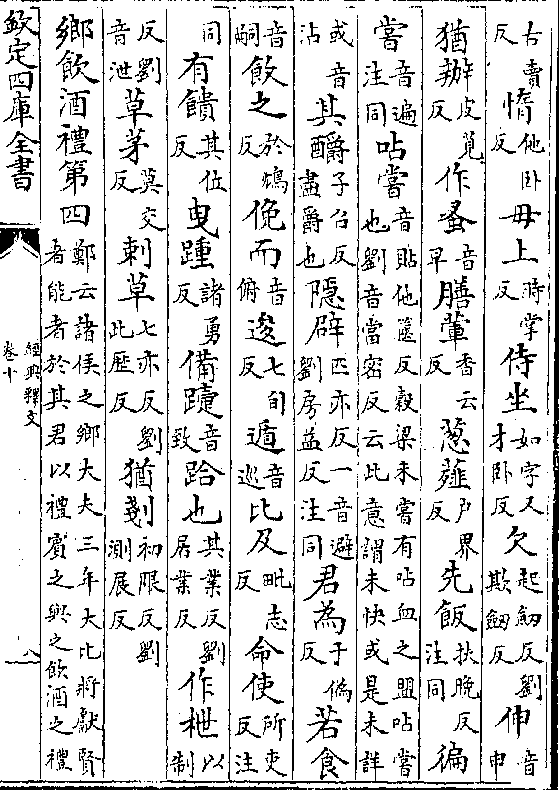 古賣反惰他卧反毋上時掌反侍坐如字又才卧反欠起劒反劉欺劒反伸音申
猶辦皮莧反作蚤音早膳葷香云反葱薤户界反先飯扶晚反注同徧
嘗音遍注同呫嘗音貼他篋反穀梁未嘗有呫血之盟呫嘗也劉音當密反云此意謂未快或是未詳
或音沾其釂子召反盡爵也隱辟匹亦反一音避劉房益反注同君為于偽反若食
音嗣飮之於鴆反俛而音俯逡七旬反遁音巡比及毗志反命使所吏反注
同有饋其位反曳踵諸勇反備躓音致跲也其業反劉居業反作枻以制
反劉音泄草茅莫交反刺草七亦反劉此歴反猶剗初限反劉測展反
鄉飲酒禮第四鄭云諸侯之鄉大夫三年大比將獻賢者能者於其君以禮賓之與之飲酒之禮
欽定四庫全書
經典釋文
卷十
八